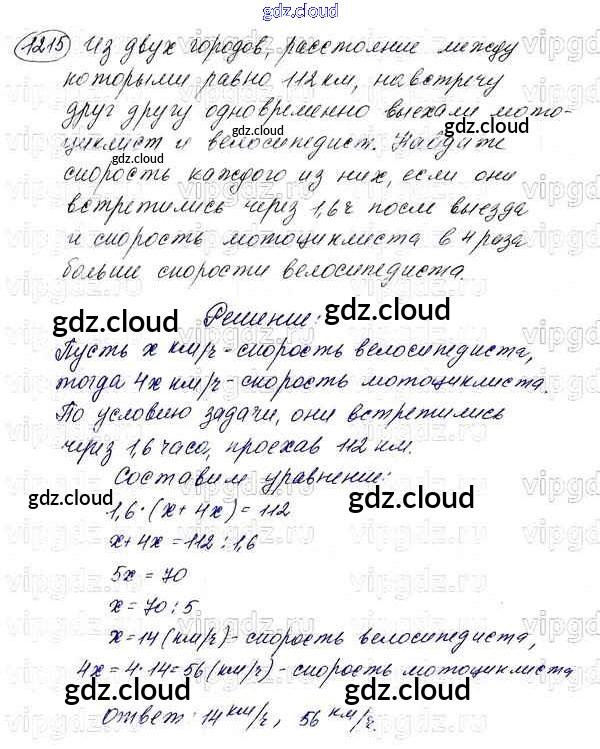 gdz.cloud
1215 Из двух городов, расстояние между
которыми равно 112 км, навстречу
друг другу одновременно выехали мото-
циклист и велосипедист. Найдите
скорость каждого из них, если они
встретились через 1,6 ч после выезда
и скорость мотоциклиста в 4 раза
больше скорости велосипедиста.
Решение:
Пусть x км/ч - скорость велосипедиста,
тогда 4x км/ч - скорость мотоциклиста.
По условию задачи, они встретились
через 1,6 часа, проехав 112 км.
Составим уравнение:
1,6·(x+4x)=112
x+4x=112:1,6
5x=70
x=70:5
x=14(км/ч)-скорость велосипедиста,
4x=4·14=56(км/ч)-скорость мотоциклиста
Ответ: 14 км/ч, 56 км/ч.